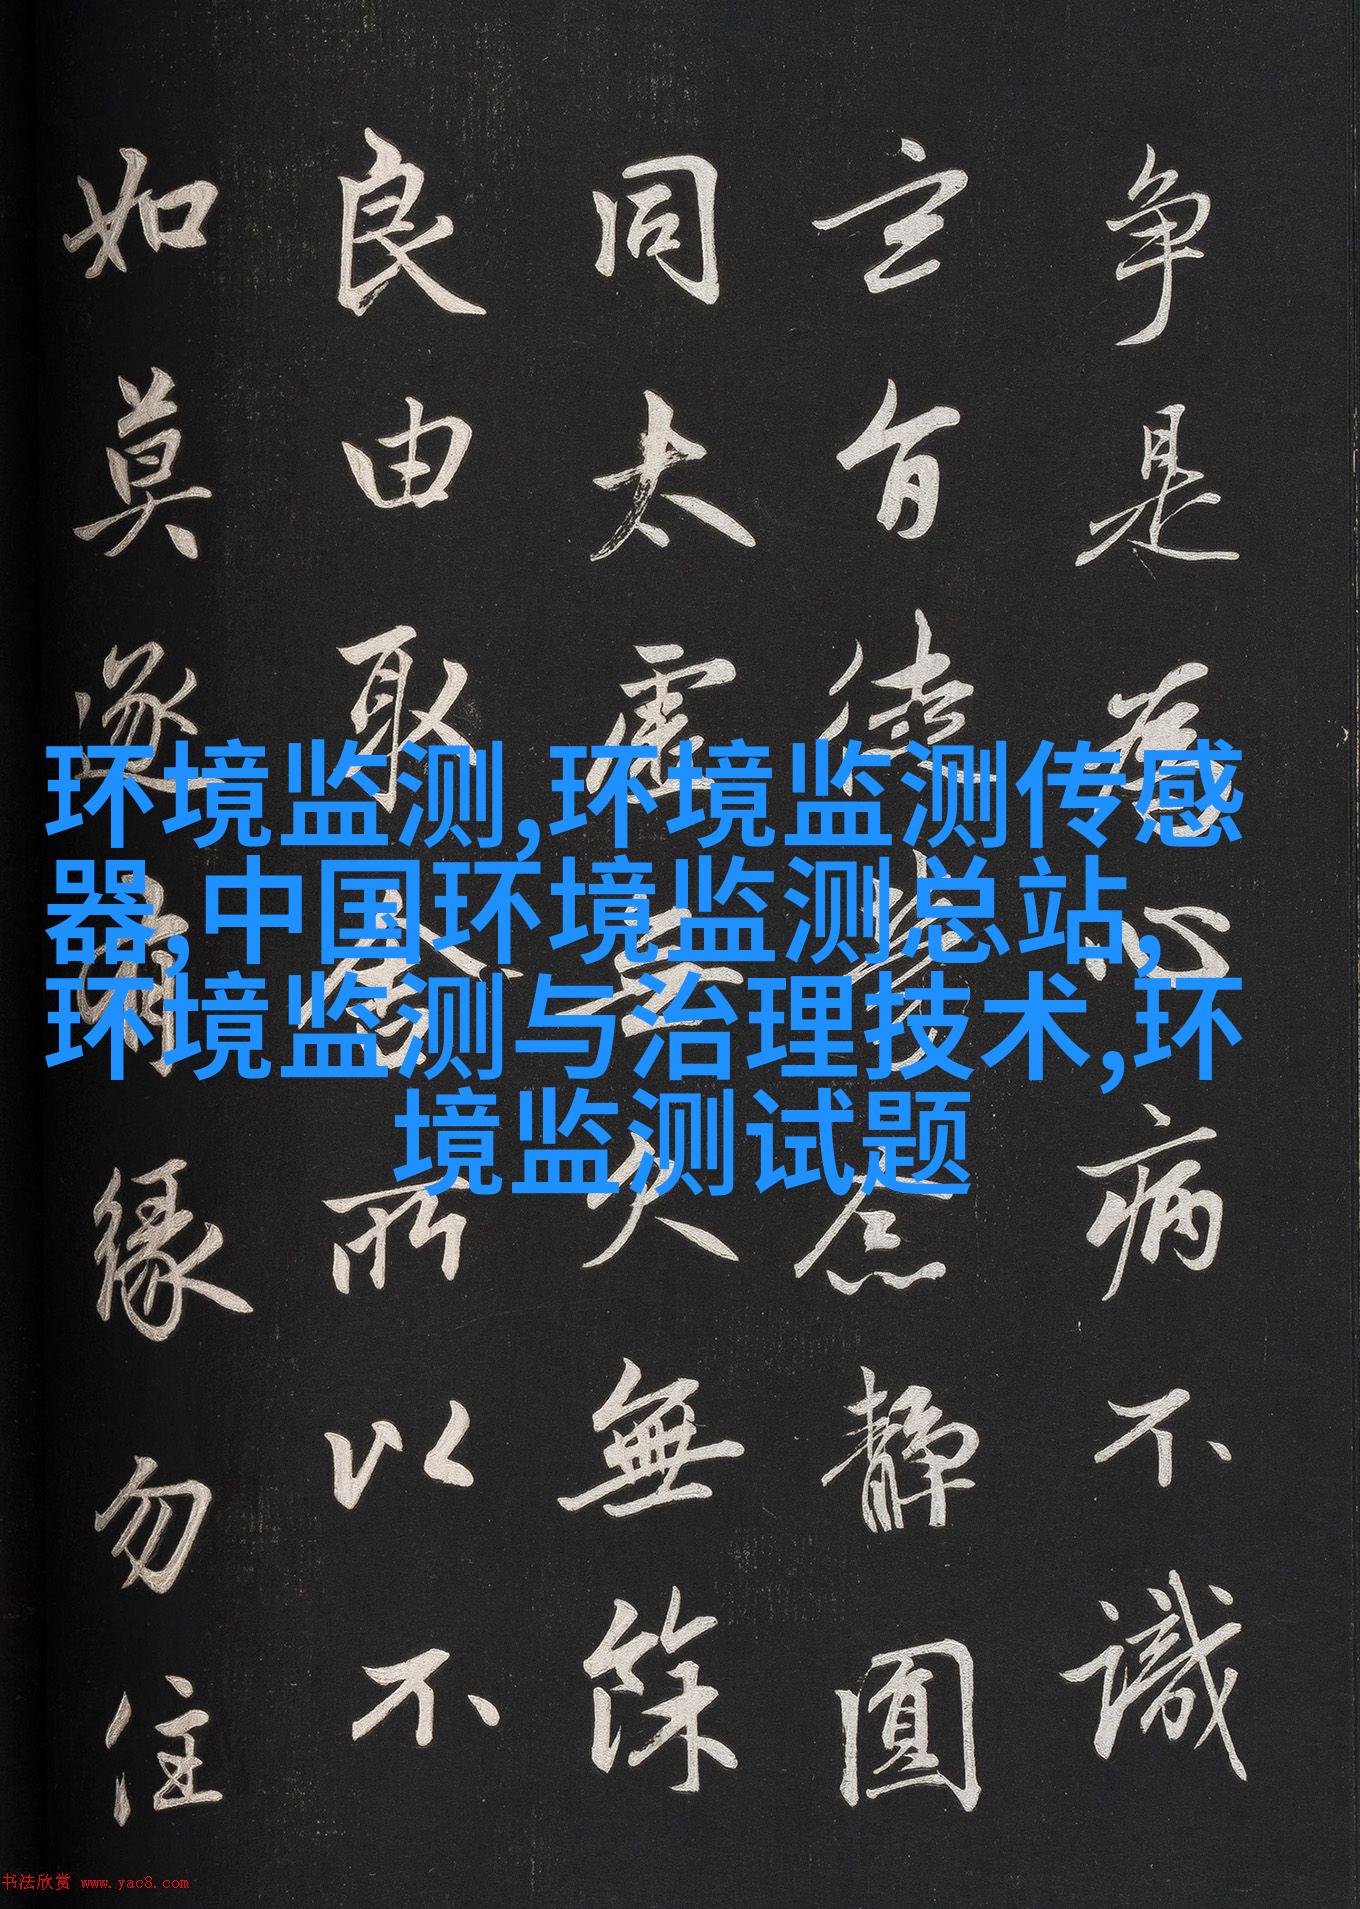 争是為心病不識
玄旨徒勞念靜圓
同太虛无欠無餘
良由取舍所以不
如莫逐有緣勿住
环境监测,环境监测传感
器,中国环境监测总站,
环境监测与治理技术,环
境监测试题
书法欣赏 www.yac8.com